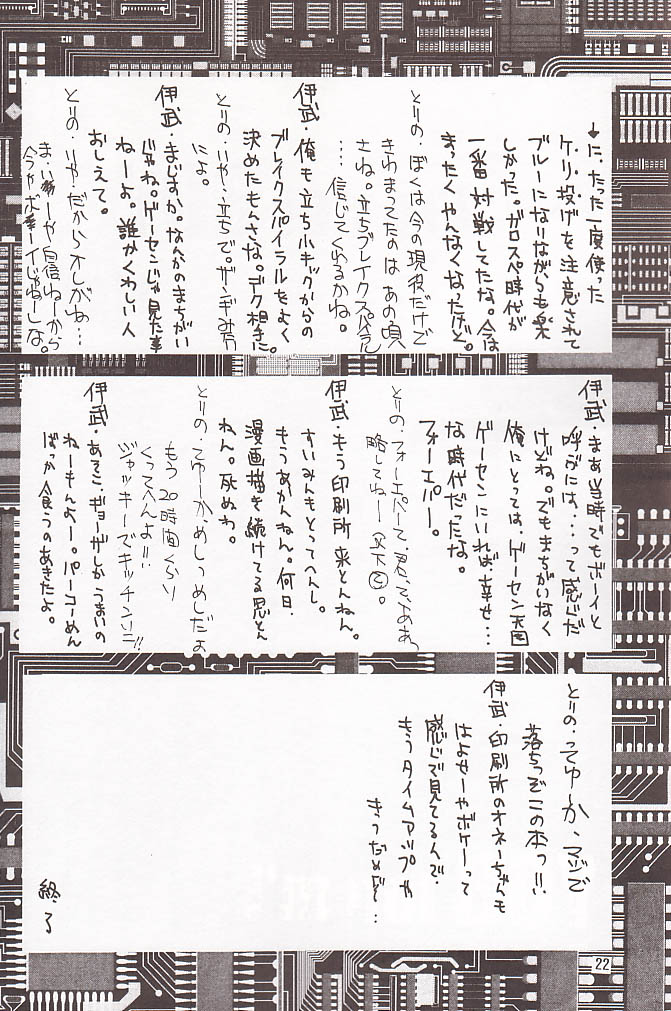 ↓に、たった一度使った
ケリ投げを注意されて
ブルーになりながらも楽
しかった。ガロスペ時代が
一番対戦してたな。今は
まったくやんなくなったけど。
とりの・ぼくは今の現役だけで
きわまってたのはあの頃
さね。立ちブレイクスパイラル
…信じてくれるかね。
伊武・俺も立ち小キックからの
ブレイクスパイラルをよく
決めたもんさな。デク相手に。
とりの・いや・立ちで。ザンギみ方
によ。
伊武・まじすか。なんかのまちがい
じゃね。ゲーセンじゃ見た事
ねーよ。誰かくわしい人
おしえて。
とりの・いや・だからオレがね…
ま・いーや自信ねーから
今やボーイじゃねしな。
伊武・まあ当時でもボーイと
呼ぶには…って感じだ
けどね。でもまちがいなく
俺にとっては、ゲーセン天国
ゲーセンにいれば、幸せ…
な時代だったな。
フォーエバー。
とりの・フォーエバーて、君、てなああ
略してねー
伊武・もう印刷所来とんねん。
すいみんもとってへんし。
もうあかんねん。何日、
漫画描き続けてる思とん
ねん。死ぬわ。
とりの・てゆーか、めしっめしだよ
もう20時間くらい
くってへんよ!!
ジャッキーでキッチンリニ!!
伊武・あそこ、ギョーザしかうまいの
ねーもんよー。パーコーめん
ばっか食うのあきたよ。
とりの・ってゆーか、マジで
落ちっぞこの本っ!!
伊武・印刷所のオネーちゃんも
はよせーやボケーって
感じで見てるんで、
もうタイムアップや
きっだめどど…
終了
22